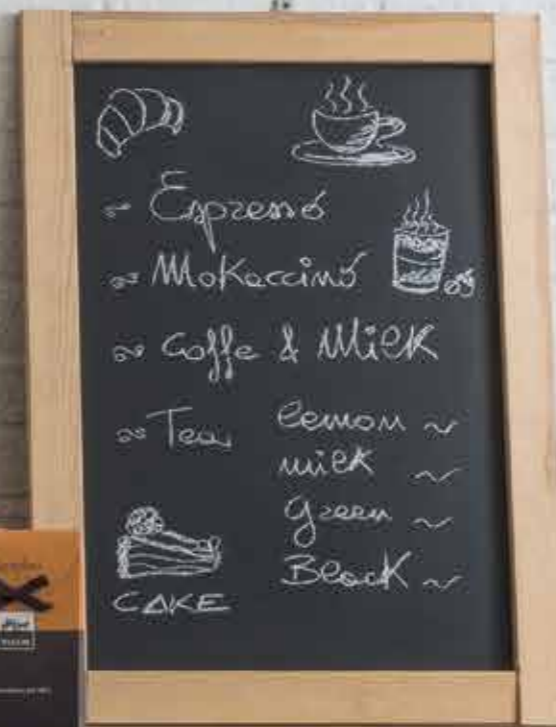 Espresso
Mokaccino
Coffe & Milk
Tea lemon
milk
green
Black
CAKE